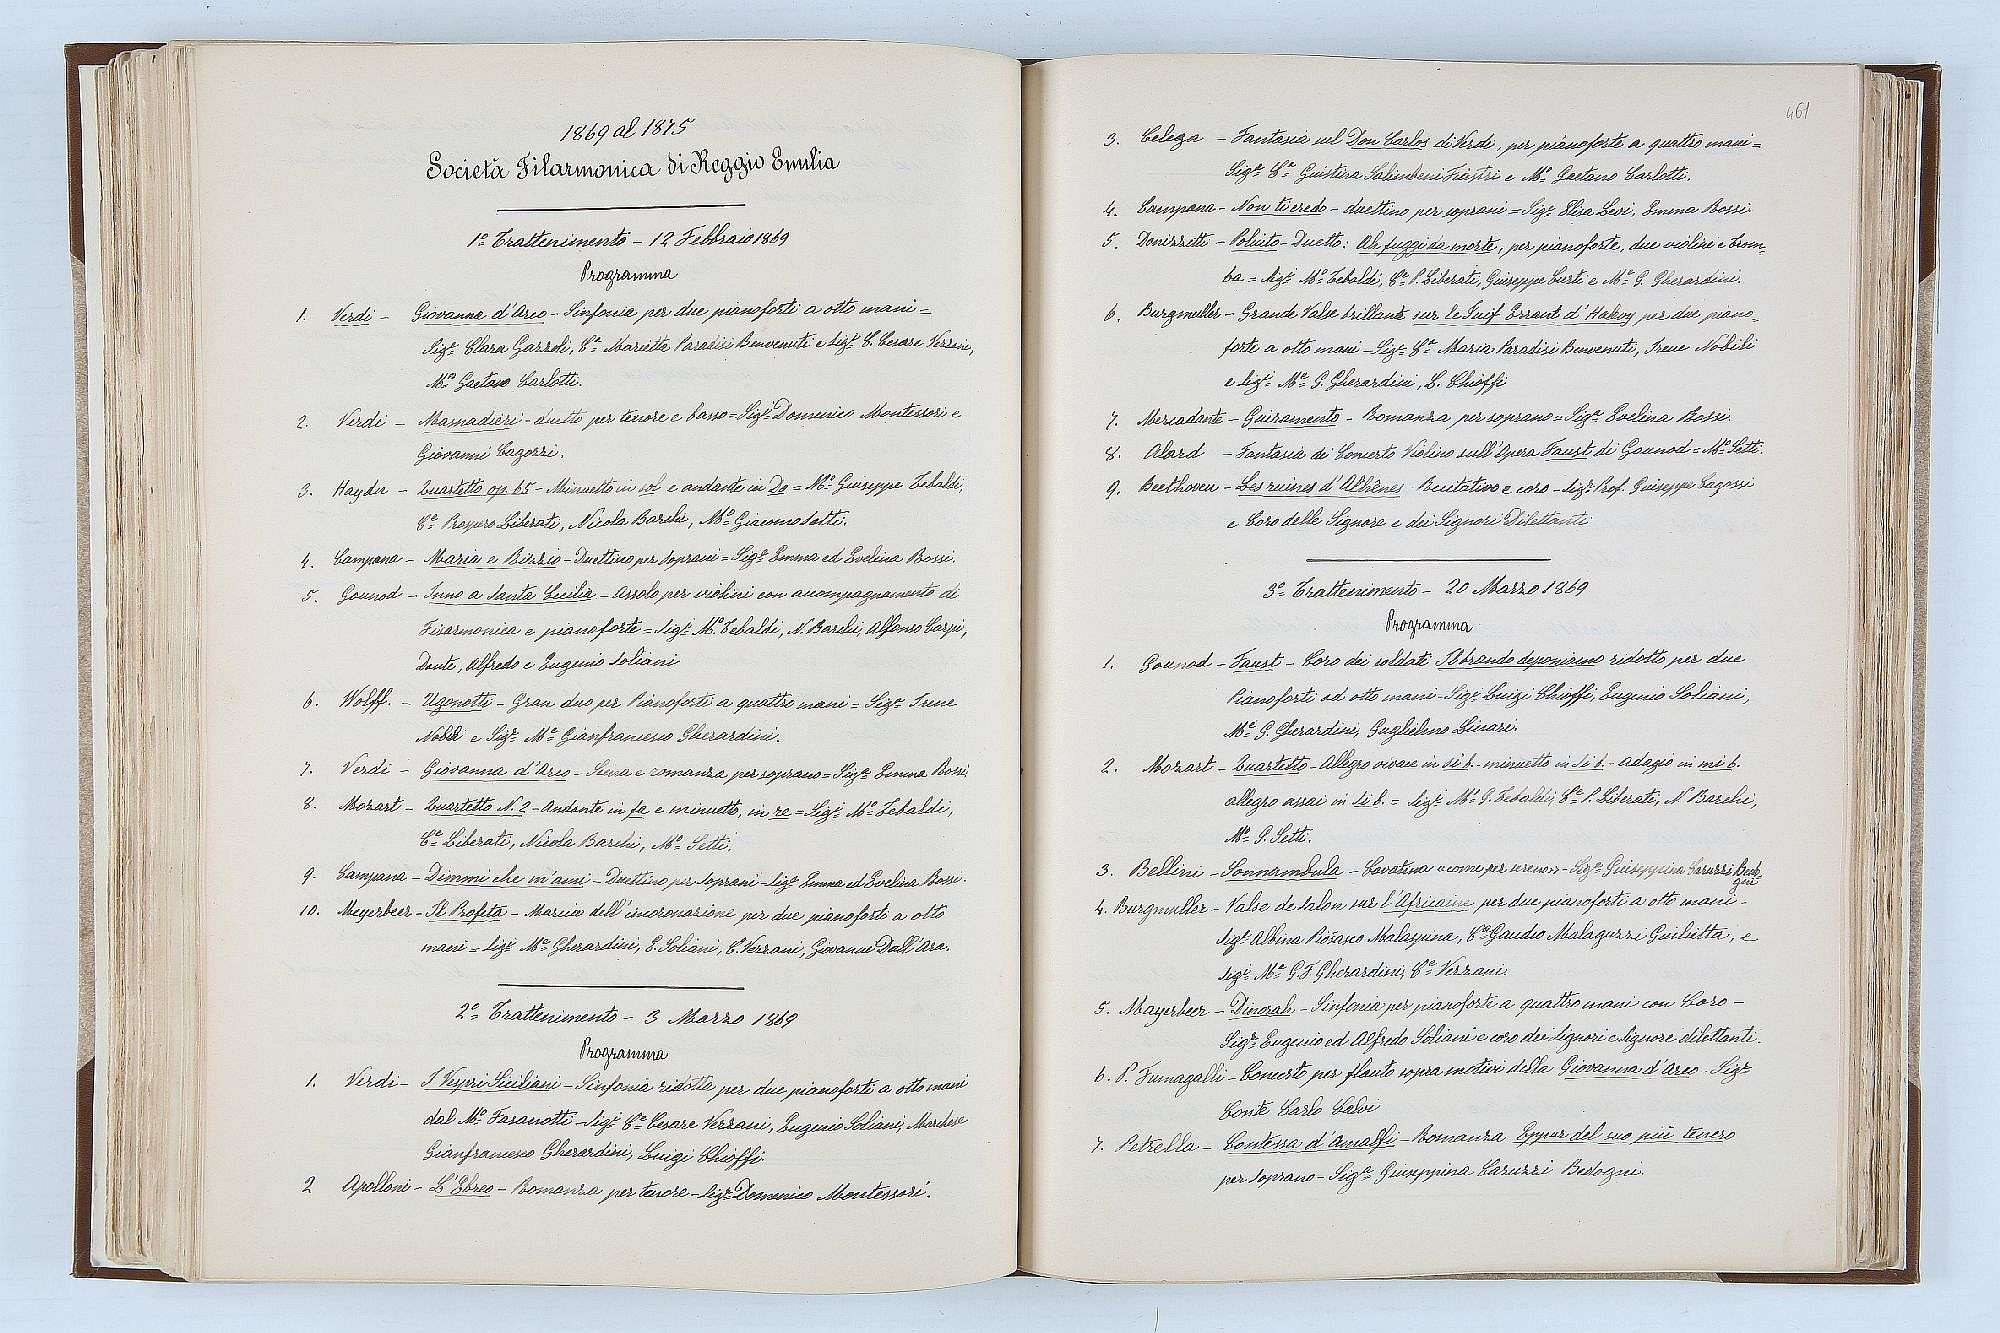 1869 al 1875
Società Filarmonica di Reggio Emilia
1º Trattenimento - 12 Febbraio 1869
Programma
1. Verdi - Giovanna d'Arco - Sinfonia per due pianoforti a otto mani =
Sigº Clara Gazzoli, Cª Marietta Paradisi Benvenuti e Sigⁱ C. Cesare Verzani,
Mº Gaetano Carlotti.
2. Verdi - Masnadieri - duetto per tenore e basso = Sigⁱ Domenico Montessori e
Giovanni Cagozzi.
3. Haydn - Quartetto op. 65 - Minuetto in sol e andante in Do = Mº Giuseppe Tebaldi,
Cº Prospero Liberati, Nicola Barchi, Mº Giacomo Setti.
4. Campana - Maria e Rizzio - Duettino per soprani = Sigº Emma ed Evelina Bossi.
5. Gounod - Inno a Santa Cecilia - Assolo per violini con accompagnamento di
Fisarmonica e pianoforte = Sigⁱ Mº Tebaldi, N. Barchi, Alfonso Carpi,
Dante, Alfredo e Eugenio Soliani
6. Wolff. - Ugonotti - Gran duo per Pianoforte a quattro mani = Sigª Irene
Nobili e Sigʳ Mº Gianfrancesco Gherardini.
7. Verdi - Giovanna d'Arco - Scena e romanza per soprano = Sigª Emma Bossi
8. Mozart - Quartetto N. 2 - Andante in fa e minuetto, in re = Sigⁱ Mº Tebaldi,
Cº Liberati, Nicola Barchi, Mº Setti.
9. Campana - Dimmi che m'ami - Duettino per soprani - Sigº Emma ed Evelina Bossi.
10. Meyerbeer - Il Profeta - Marcia dell'incoronazione per due pianoforti a otto
mani = Sigⁱ Mº Gherardini, E. Soliani, C. Verzani, Giovanni Dall'Ara.
2º Trattenimento - 3 Marzo 1869
Programma
1. Verdi - I Vespri Siciliani - Sinfonia ridotta per due pianoforti a otto mani
dal Mº Fasanotti - Sigⁱ Cº Cesare Verzani, Eugenio Soliani, Marchese
Gianfrancesco Gherardini, Luigi Chioffi.
2 Apolloni - L'Ebreo - Romanza per tenore - Sigʳ Domenico Montessori.
461
3. Celega - Fantasia sul Don Carlos di Verdi, per pianoforte a quattro mani =
Sigª Cª Giustina Salimbeni Fiastri e Mº Gaetano Carlotti.
4. Campana - Non ti credo - duettino per soprani = Sigº Elisa Levi, Emma Bossi.
5. Donizzetti - Poliuto - Duetto: Ah fuggi da morte, per pianoforte, due violini e trom-
ba = Sigⁱ Mº Tebaldi, Cº P. Liberati, Giuseppe Curti e Mº G. Gherardini.
6. Burgmuller - Grande Valse brillante sur le Juif Errant d'Halevy per due piano-
forte a otto mani - Sigº Cª Maria Paradisi Benvenuti, Irene Nobili
e Sigⁱ Mº G. Gherardini, L. Chioffi
7. Mercadante - Guiramento - Romanza per soprano = Sigª Evelina Bossi.
8. Alard - Fantasia di Concerto Violino sull'Opera Faust di Gounod = Mº Setti.
9. Beethoven - Les ruines d'Athènes Recitativo e coro - Sigʳ Prof. Giuseppe Cagozzi
e Coro delle Signore e dei Signori Dilettanti
3º Trattenimento - 20 Marzo 1869
Programma
1. Gounod - Faust - Coro dei soldati Il brando deponiamo ridotto per due
Pianoforti ad otto mani - Sigⁱ Luigi Chioffi, Eugenio Soliani,
Mº G. Gherardini, Guglielmo Linari.
2. Mozart - Quartetto - Allegro vivace in si b. - minuetto in si b. - adagio in mi b.
allegro assai in si b. = Sigⁱ Mº G. Tebaldi, Cº P. Liberati, N. Barchi,
Mº G. Setti.
3. Bellini - Sonnambula - Cavatina Come per sereno - Sigª Giuseppina Caruzzi Bedo-
gni
4. Burgmuller - Valse de Salon sur l'Africaine per due pianoforti a otto mani -
Sigº Albina Rosaro Malaspina, Gaudio Malaguzzi Giulietta, e
Sigⁱ Mº G. F. Gherardini, Cº Verzani.
5. Mayerbeer - Dinorah - Sinfonia per pianoforte a quattro mani con Coro -
Sigⁱ Eugenio ed Alfredo Soliani e coro dei signori e signore dilettanti.
6. P. Fumagalli - Concerto per flauto sopra motivi della Giovanna d'Arco Sigʳ
Conte Carlo Calvi
7. Petrella - Contessa d'Amalfi - Romanza Eppur del suo più tenero
per soprano - Sigª Giuseppina Caruzzi Bedogni.